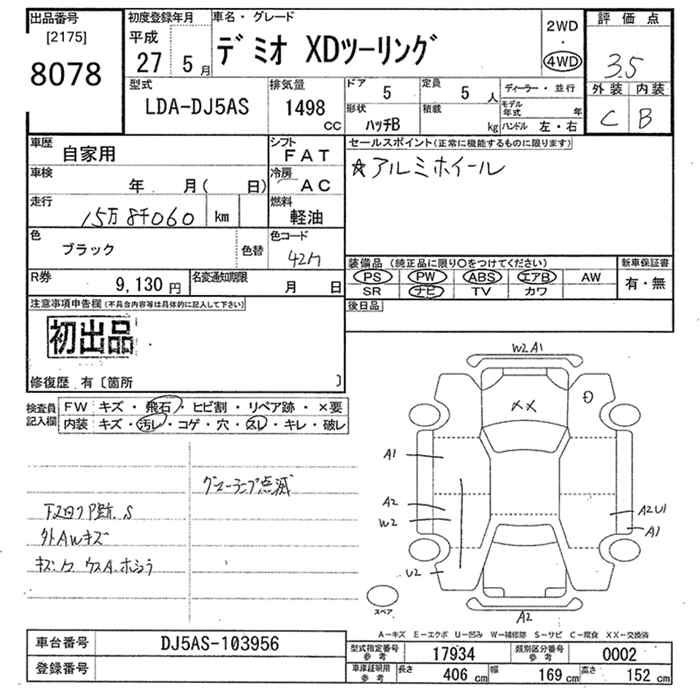 出品番号 初度登録年月 車名・グレード 評価点
[2175] 平成 2WD
8078 27 5月 デミオ XDツーリング ・ 4WD 3.5
型式 排気量 ドア 定員 ディーラー・並行 外装 内装
LDA-DJ5AS 1498 cc 5 5人 モデル年式 年 C B
形状 積載
ハッチB kg ハンドル 左・右
車歴 シフト セールスポイント(正常に機能するものに限ります)
自家用 FAT ☆アルミホイール
車検 冷房
年 月( 日) AC
走行 燃料
15万8千060 km 軽油
色 色コード
ブラック 色替 42M
装備品(純正品に限り○をつけてください) 新車保証書
PS PW ABS エアB AW 有・無
SR ナビ TV カワ
R券 名変通知期限 後日品
9,130円 月 日
注意事項申告欄(不具合内容等は具体的に記入して下さい)
初出品
修復歴 有〔箇所 〕
検査員記入欄 FW キズ・飛石・ヒビ割・リペア跡・×要
内装 キズ・汚レ・コゲ・穴・スレ・キレ・破レ
グローランプ点滅
外AWキズ
W2A1
XX
A1
A2
W2
U2
A2U1
A1
A2
スペア
A-キズ E-エクボ U-凹み W-補修跡 S-サビ C-腐食 XX-交換済
車台番号 DJ5AS-103956 型式指定番号 参考 17934 類別区分番号 参考 0002
登録番号 車庫証明用 参考 長さ 406cm 幅 169cm 高さ 152cm